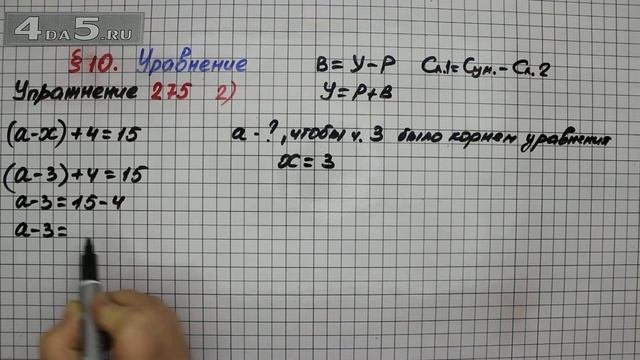 4DA5.RU
§10. Уравнение
В = У - Р Сл.1 = Сум. - Сл.2
Упражнение 275 2)
У = Р + В
(а - х) + 4 = 15
а - ?, чтобы ч. 3 было корнем уравнения
х = 3
(а - 3) + 4 = 15
а - 3 = 15 - 4
а - 3 =